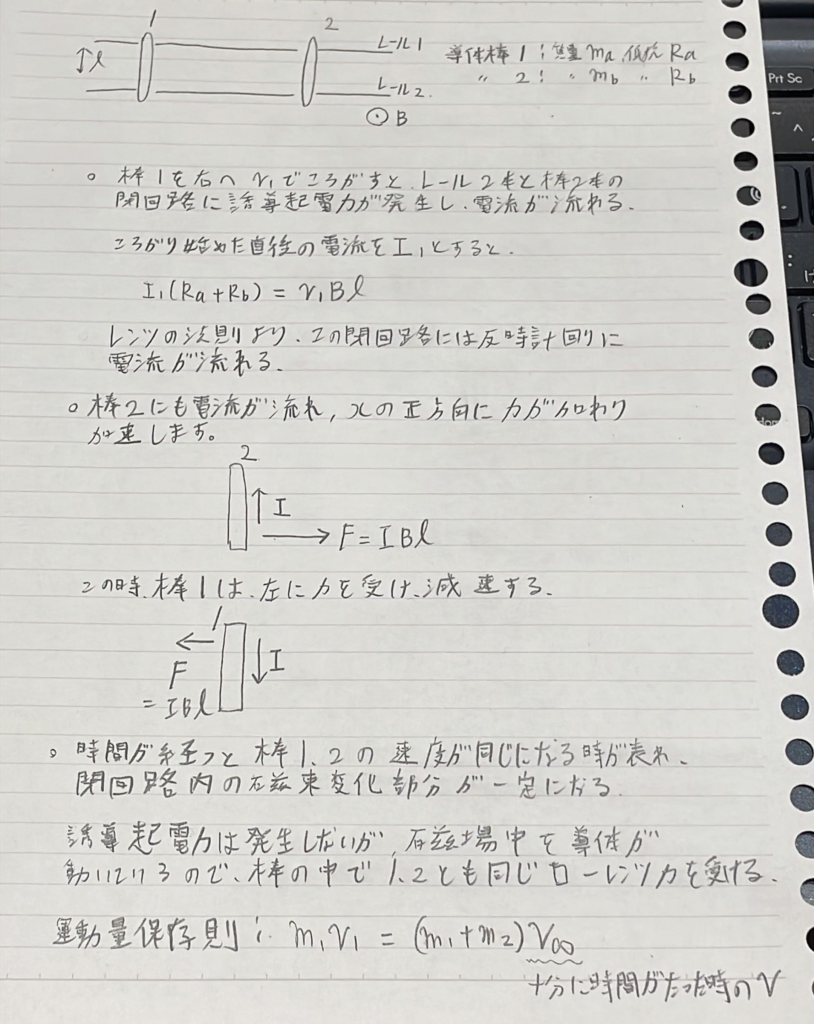 1 2
↕l レール1 導体棒1:質量 ma 抵抗 Ra
レール2 〃 2: 〃 mb 〃 Rb
⊙ B
Prt Sc
。棒1を右へ v₁でころがすと、レール2本と棒2本の
閉回路に誘導起電力が発生し、電流が流れる。
ころがり始めた直後の電流を I₁とすると、
I₁(Ra+Rb) = v₁Bl
レンツの法則より、この閉回路には反時計回りに
電流が流れる。
。棒2にも電流が流れ、xの正方向に力が加わり
加速します。
2
↑I
→ F=IBl
この時、棒1は、左に力を受け、減速する。
1
← ↓I
F
=IBl
。時間が経つと棒1、2の速度が同じになる時が表れ、
閉回路内の磁束変化部分が一定になる。
誘導起電力は発生しないが、磁場中を導体が
動いているので、棒の中で1、2とも同じローレンツ力を受ける。
運動量保存則: m₁v₁ = (m₁+m₂)v∞
十分に時間がたった時のv